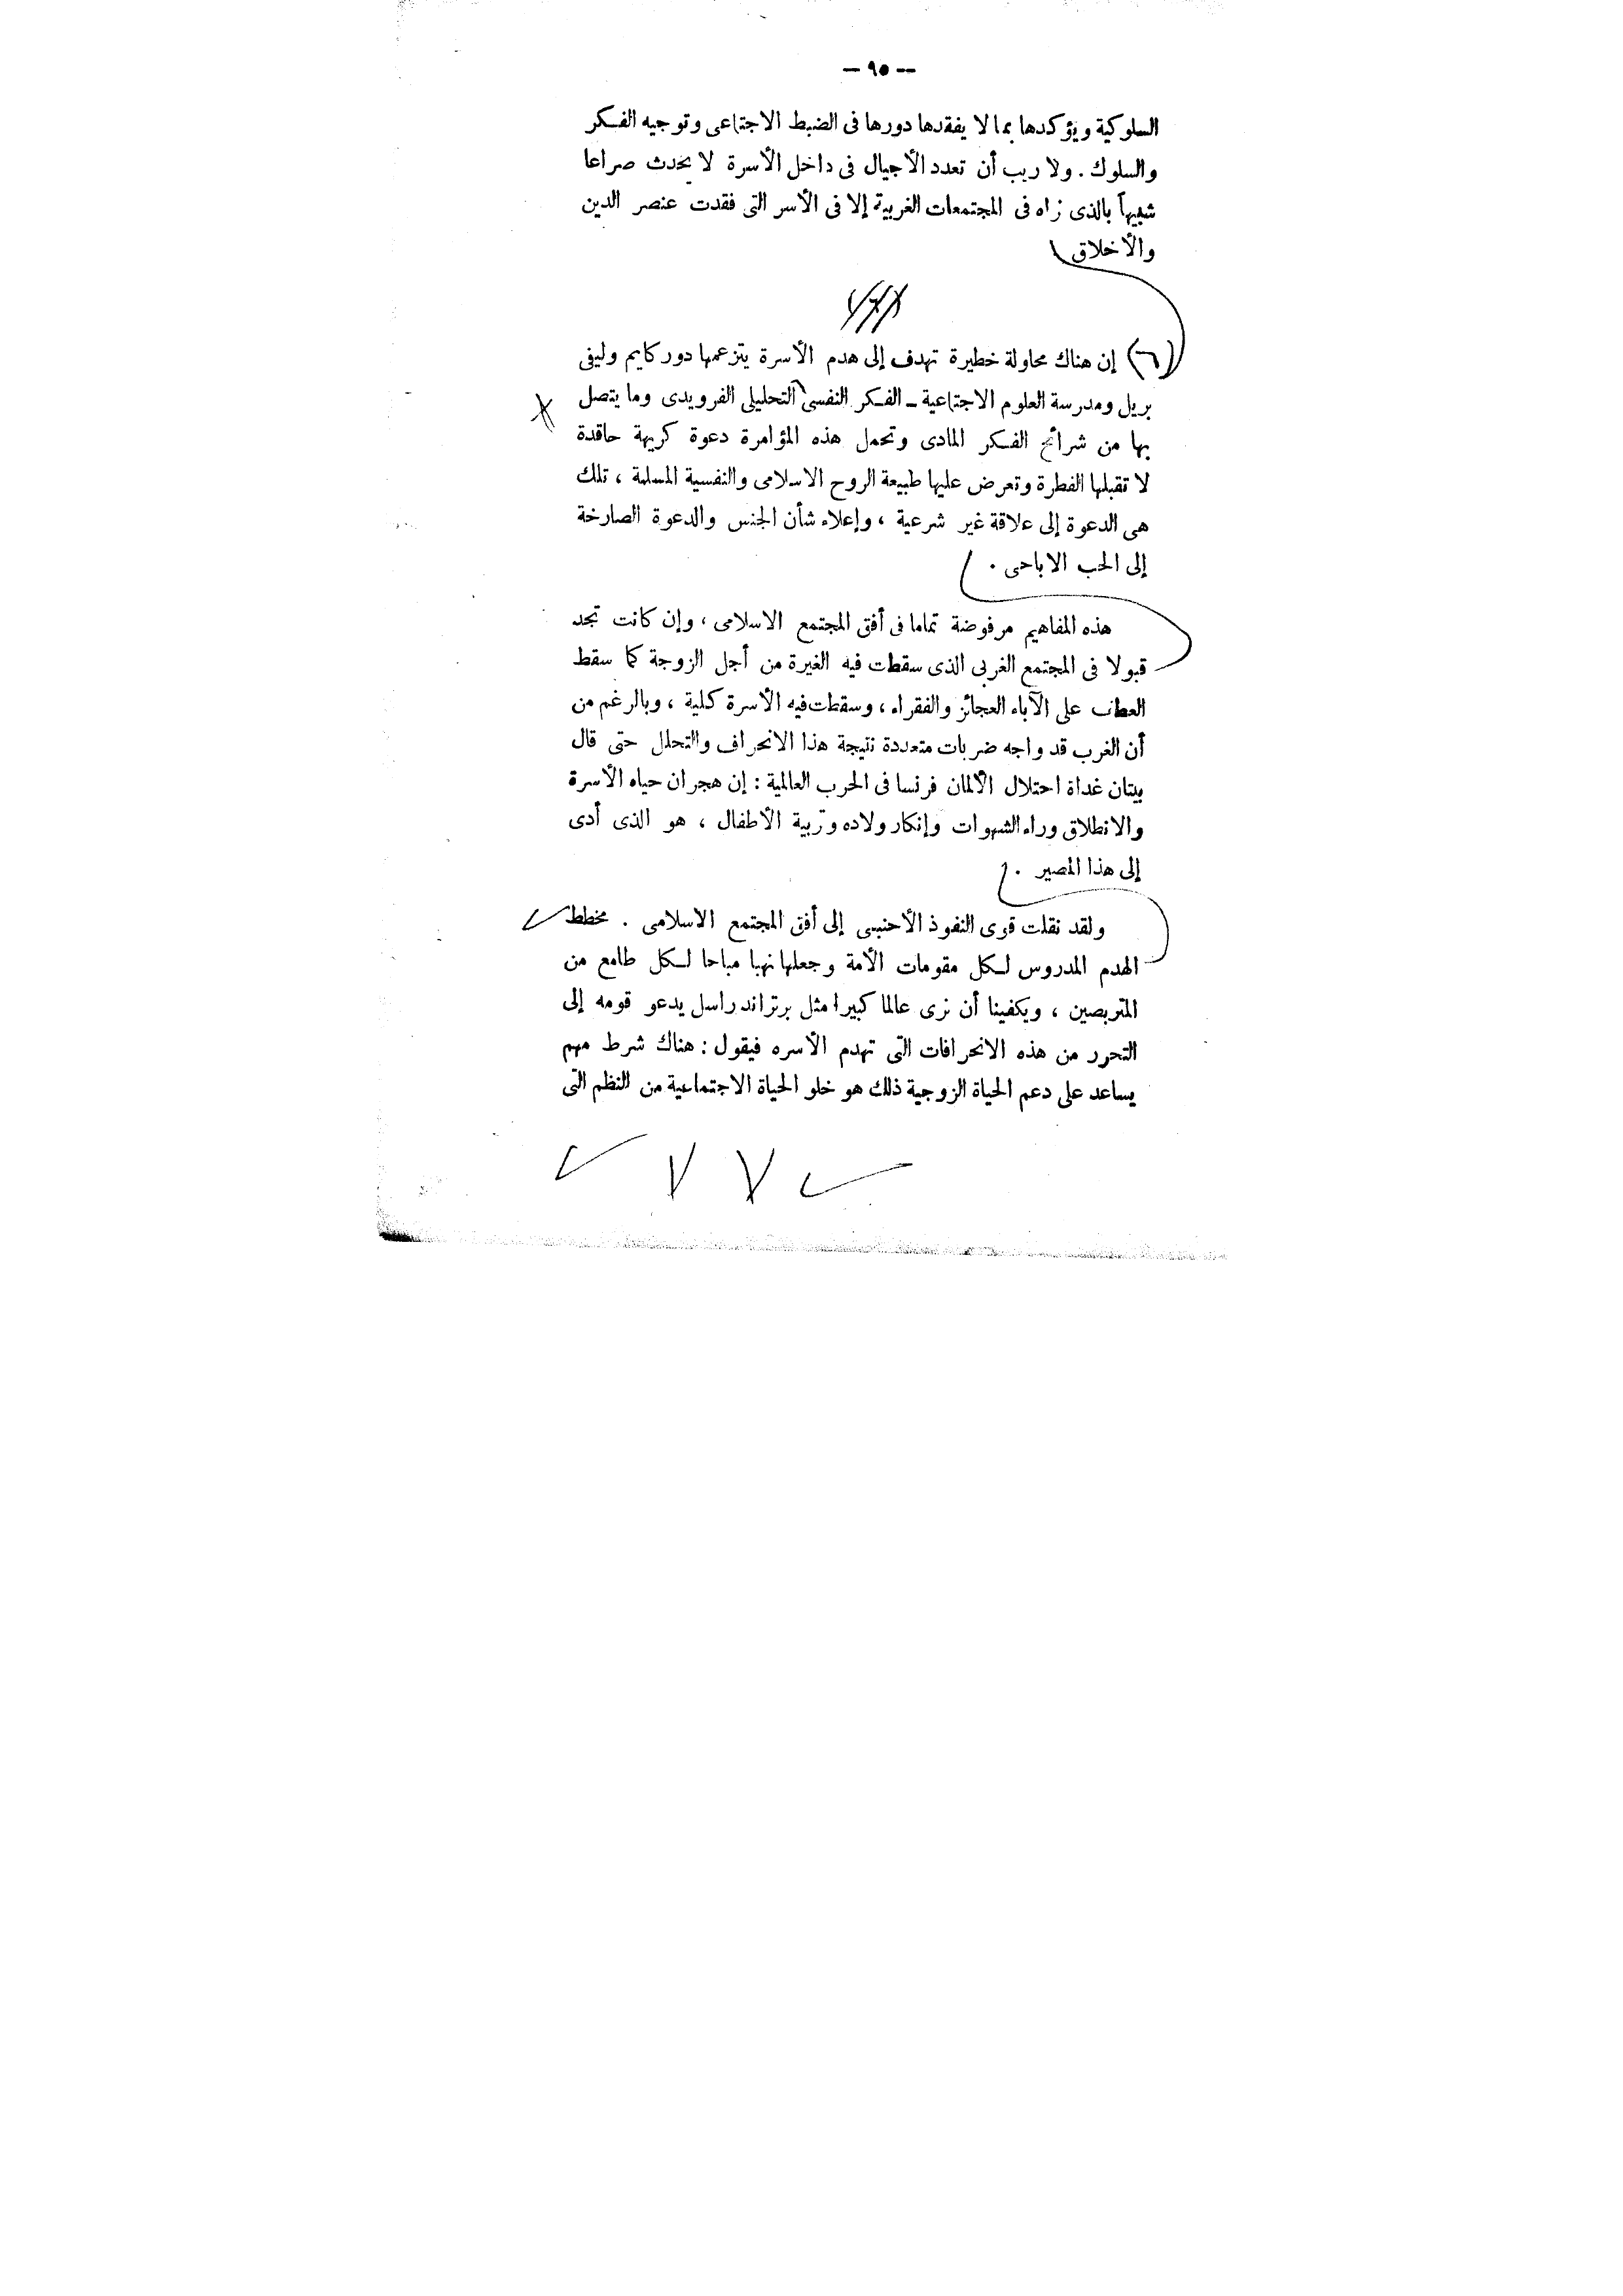 — ٩٥ —
السلوكية ويؤكدها بما لا يفقدها دورها فى الضبط الاجتماعى وتوجيه الفكر
والسلوك . ولا ريب أن تعدد الأجيال فى داخل الأسرة لا يحدث صراعا
شبيهاً بالذى نراه فى المجتمعات الغربية إلا فى الأسر التى فقدت عنصر الدين
والأخلاق
(٦) إن هناك محاولة خطيرة تهدف إلى هدم الأسرة يتزعمها دوركايم وليفى
بريل ومدرسة العلوم الاجتماعية ــ الفكر النفسى التحليلى الفرويدى وما يتصل
بها من شرائح الفكر المادى وتحمل هذه المؤامرة دعوة كريهة حاقدة
لا تقبلها الفطرة وتعرض عليها طبيعة الروح الاسلامى والنفسية المسلمة ، تلك
هى الدعوة إلى علاقة غير شرعية ، وإعلاء شأن الجنس والدعوة الصارخة
إلى الحب الاباحى .
هذه المفاهيم مرفوضة تماما فى أفق المجتمع الاسلامى ، وإن كانت تجد
قبولا فى المجتمع الغربى الذى سقطت فيه الغيرة من أجل الزوجة كما سقط
العطف على الآباء العجائز والفقراء ، وسقطت فيه الأسرة كلية ، وبالرغم من
أن الغرب قد واجه ضربات متعددة نتيجة هذا الانحراف والتحلل حتى قال
بيتان غداة احتلال الألمان فرنسا فى الحرب العالمية : إن هجران حياه الأسرة
والانطلاق وراء الشهوات وإنكار ولاده وتربية الأطفال ، هو الذى أدى
إلى هذا المصير .
ولقد نقلت قوى النفوذ الأجنبى إلى أفق المجتمع الاسلامى . مخطط
الهدم المدروس لكل مقومات الأمة وجعلها نهبا مباحا لكل طامع من
المتربصين ، ويكفينا أن نرى عالما كبيرا مثل برتراند راسل يدعو قومه إلى
التحرر من هذه الانحرافات التى تهدم الأسره فيقول : هناك شرط مهم
يساعد على دعم الحياة الزوجية ذلك هو خلو الحياة الاجتماعية من النظم التى